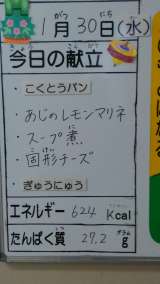 1月30日(水)
今日の献立
・こくとうパン
・あじのレモンマリネ
・スープ煮
・固形チーズ
・ぎゅうにゅう
エネルギー 624 Kcal
たんぱく質 27.2 g